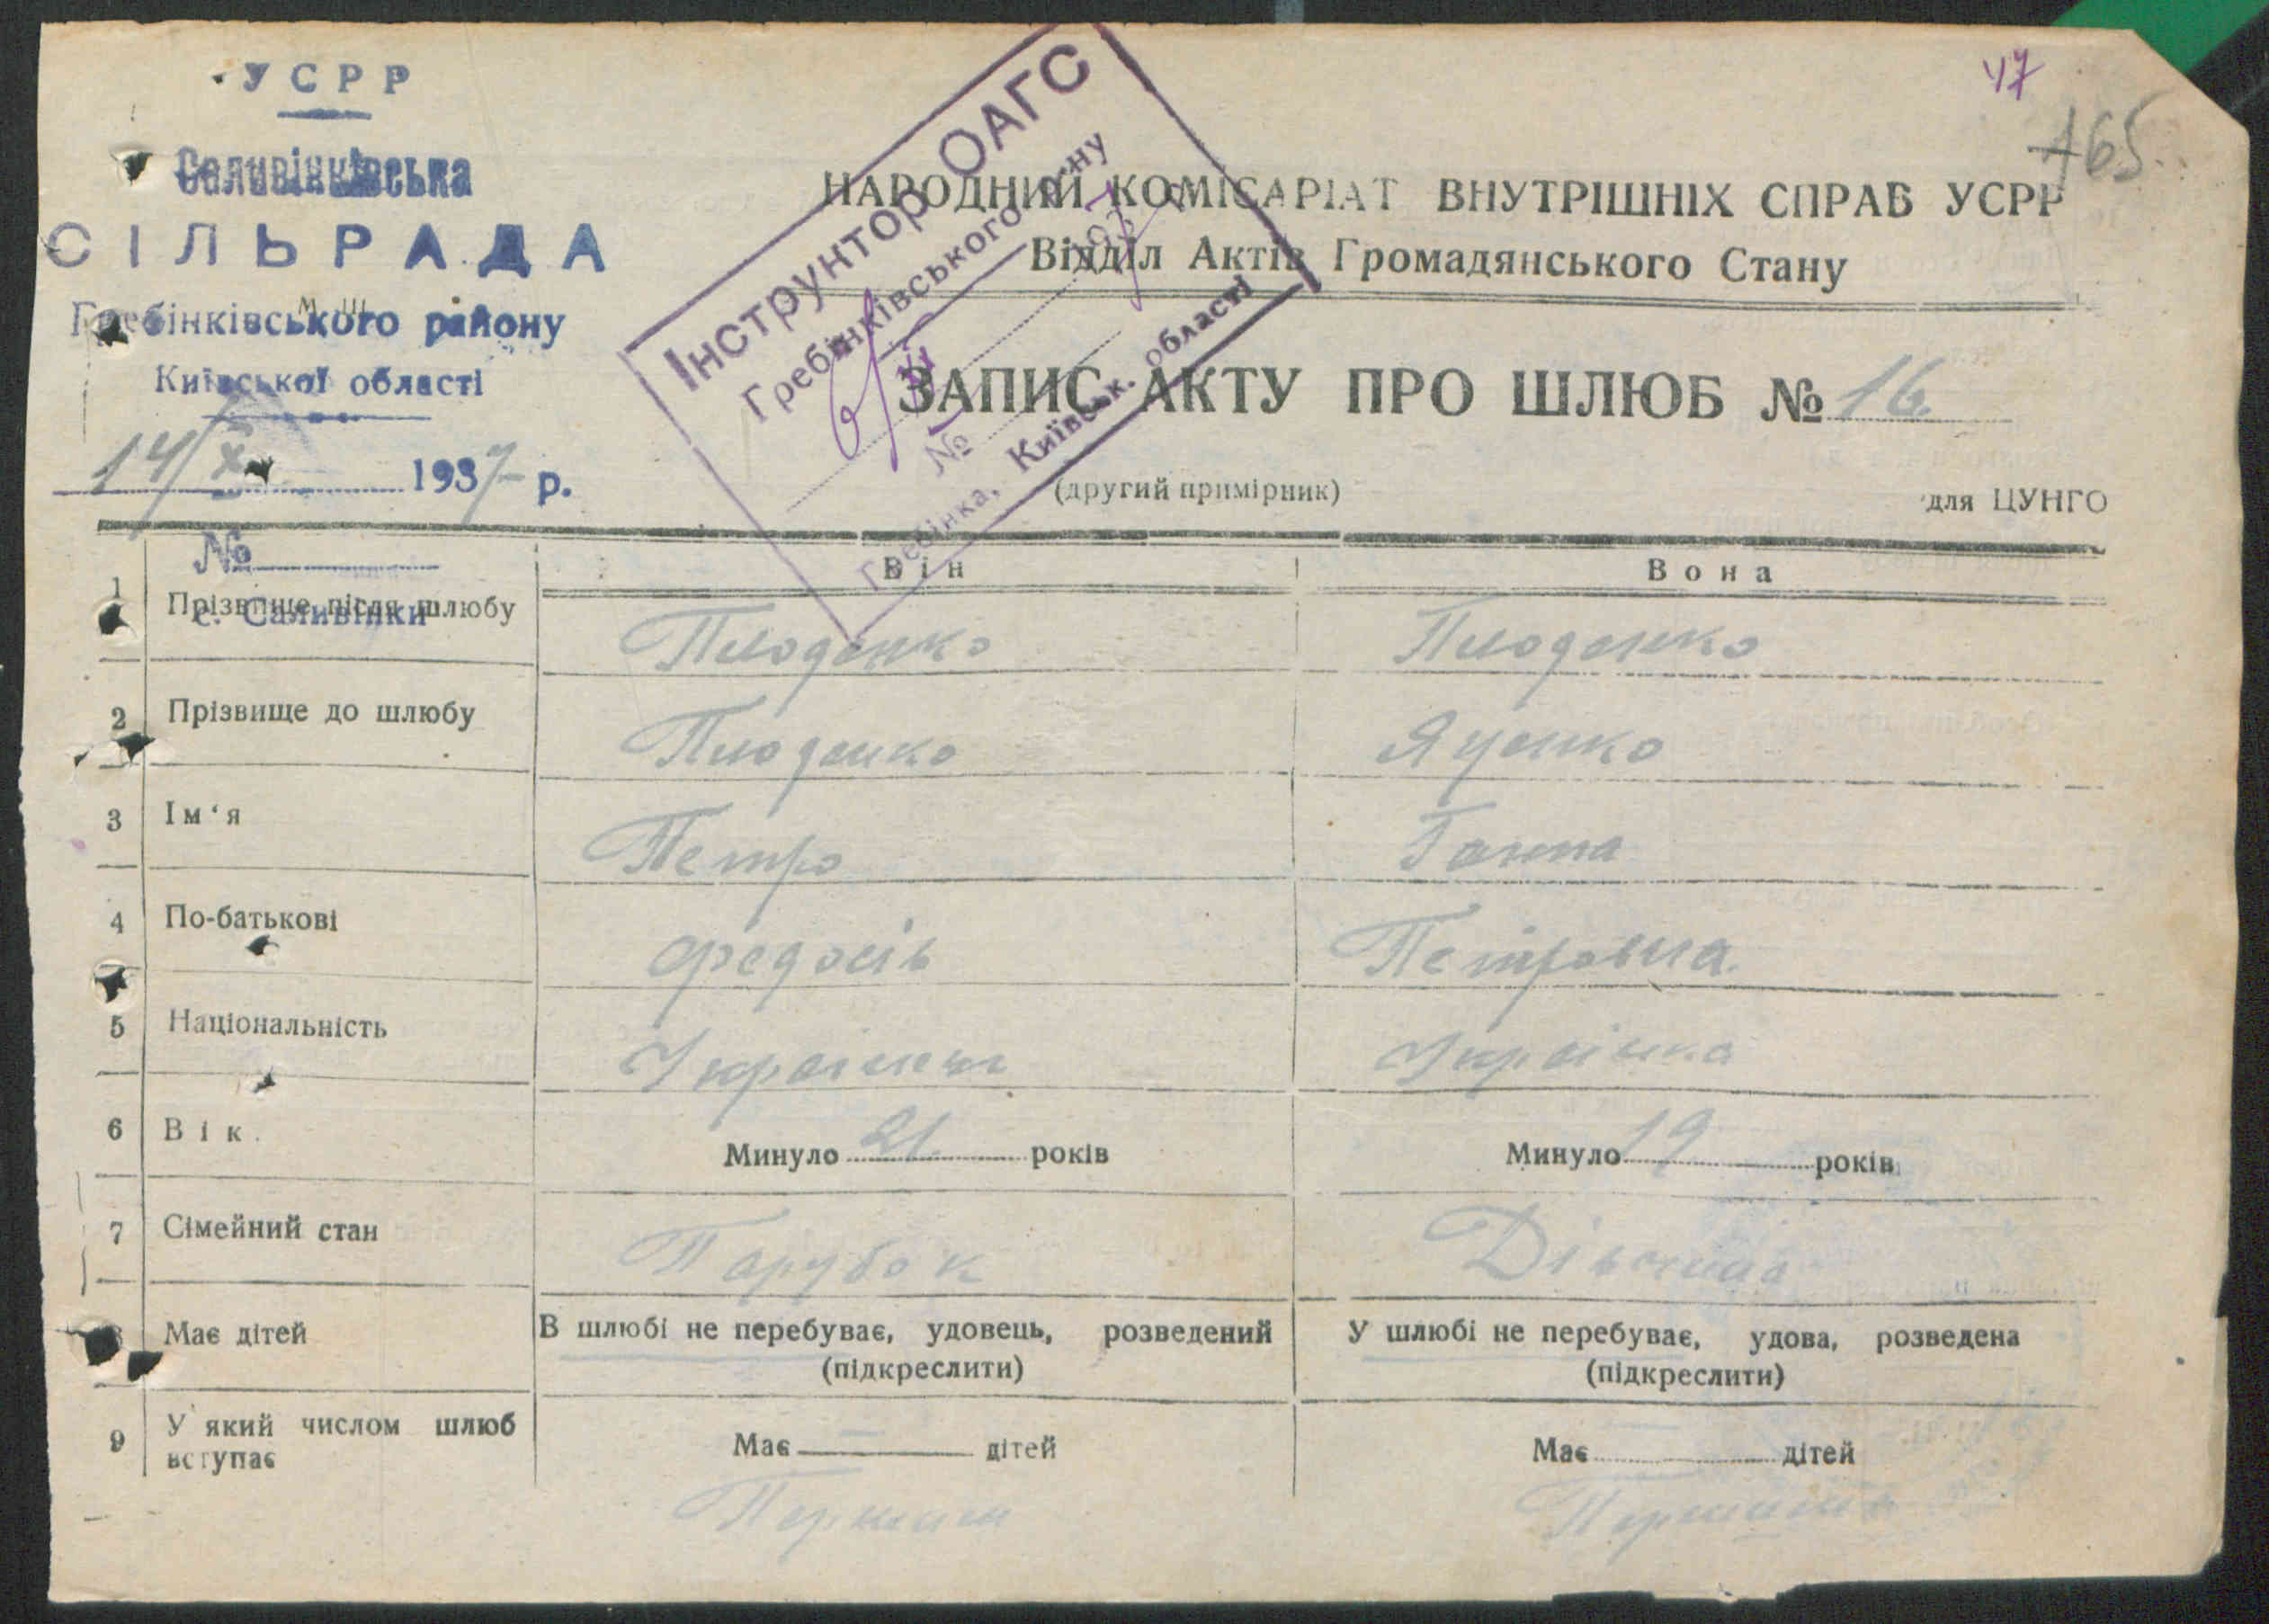 УСРР
Саливінківська
СІЛЬРАДА
Гребінківського району
Київської області
14/X 1937 р.
№
с. Саливінки
47
165
Інструктор ОАГС
Гребінківського р-ну
№
Гребінка, Київськ. області
НАРОДНИЙ КОМІСАРІАТ ВНУТРІШНІХ СПРАВ УСРР
Відділ Актів Громадянського Стану
ЗАПИС АКТУ ПРО ШЛЮБ № 16
(другий примірник) для ЦУНГО
Він Вона
1 Прізвище після шлюбу Плоденко Плоденко
2 Прізвище до шлюбу Плоденко Яценко
3 Ім‘я Петро Ганна
4 По-батькові Федосів Петровна
5 Національність Українець Українка
6 Вік. Минуло 21 років Минуло 19 років
7 Сімейний стан Парубок Дівчина
8 Має дітей В шлюбі не перебуває, удовець, розведений У шлюбі не перебуває, удова, розведена
(підкреслити) (підкреслити)
9 У який числом шлюб вступає Має — дітей Має — дітей
Першим